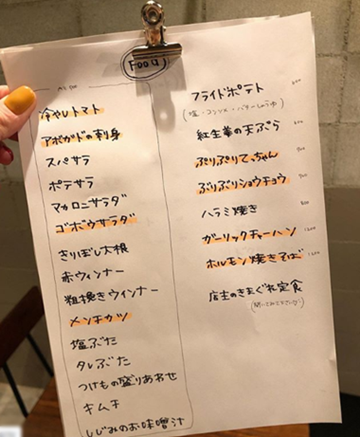 Food
冷やしトマト
アボカドの刺身
スパサラ
ポテサラ
マカロニサラダ
ゴボウサラダ
きりぼし大根
赤ウィンナー
粗挽きウィンナー
メンチカツ
塩ぶた
タレぶた
つけもの盛りあわせ
キムチ
しじみのお味噌汁
フライドポテト
(塩・コンソメ・バターしょうゆ)
紅生姜の天ぷら
ぷりぷりてっちゃん
ぶりぶりショウチョウ
ハラミ焼き
ガーリックチャーハン
ホルモン焼きそば
店主のきまぐれ定食
(聞いてみて下さい)